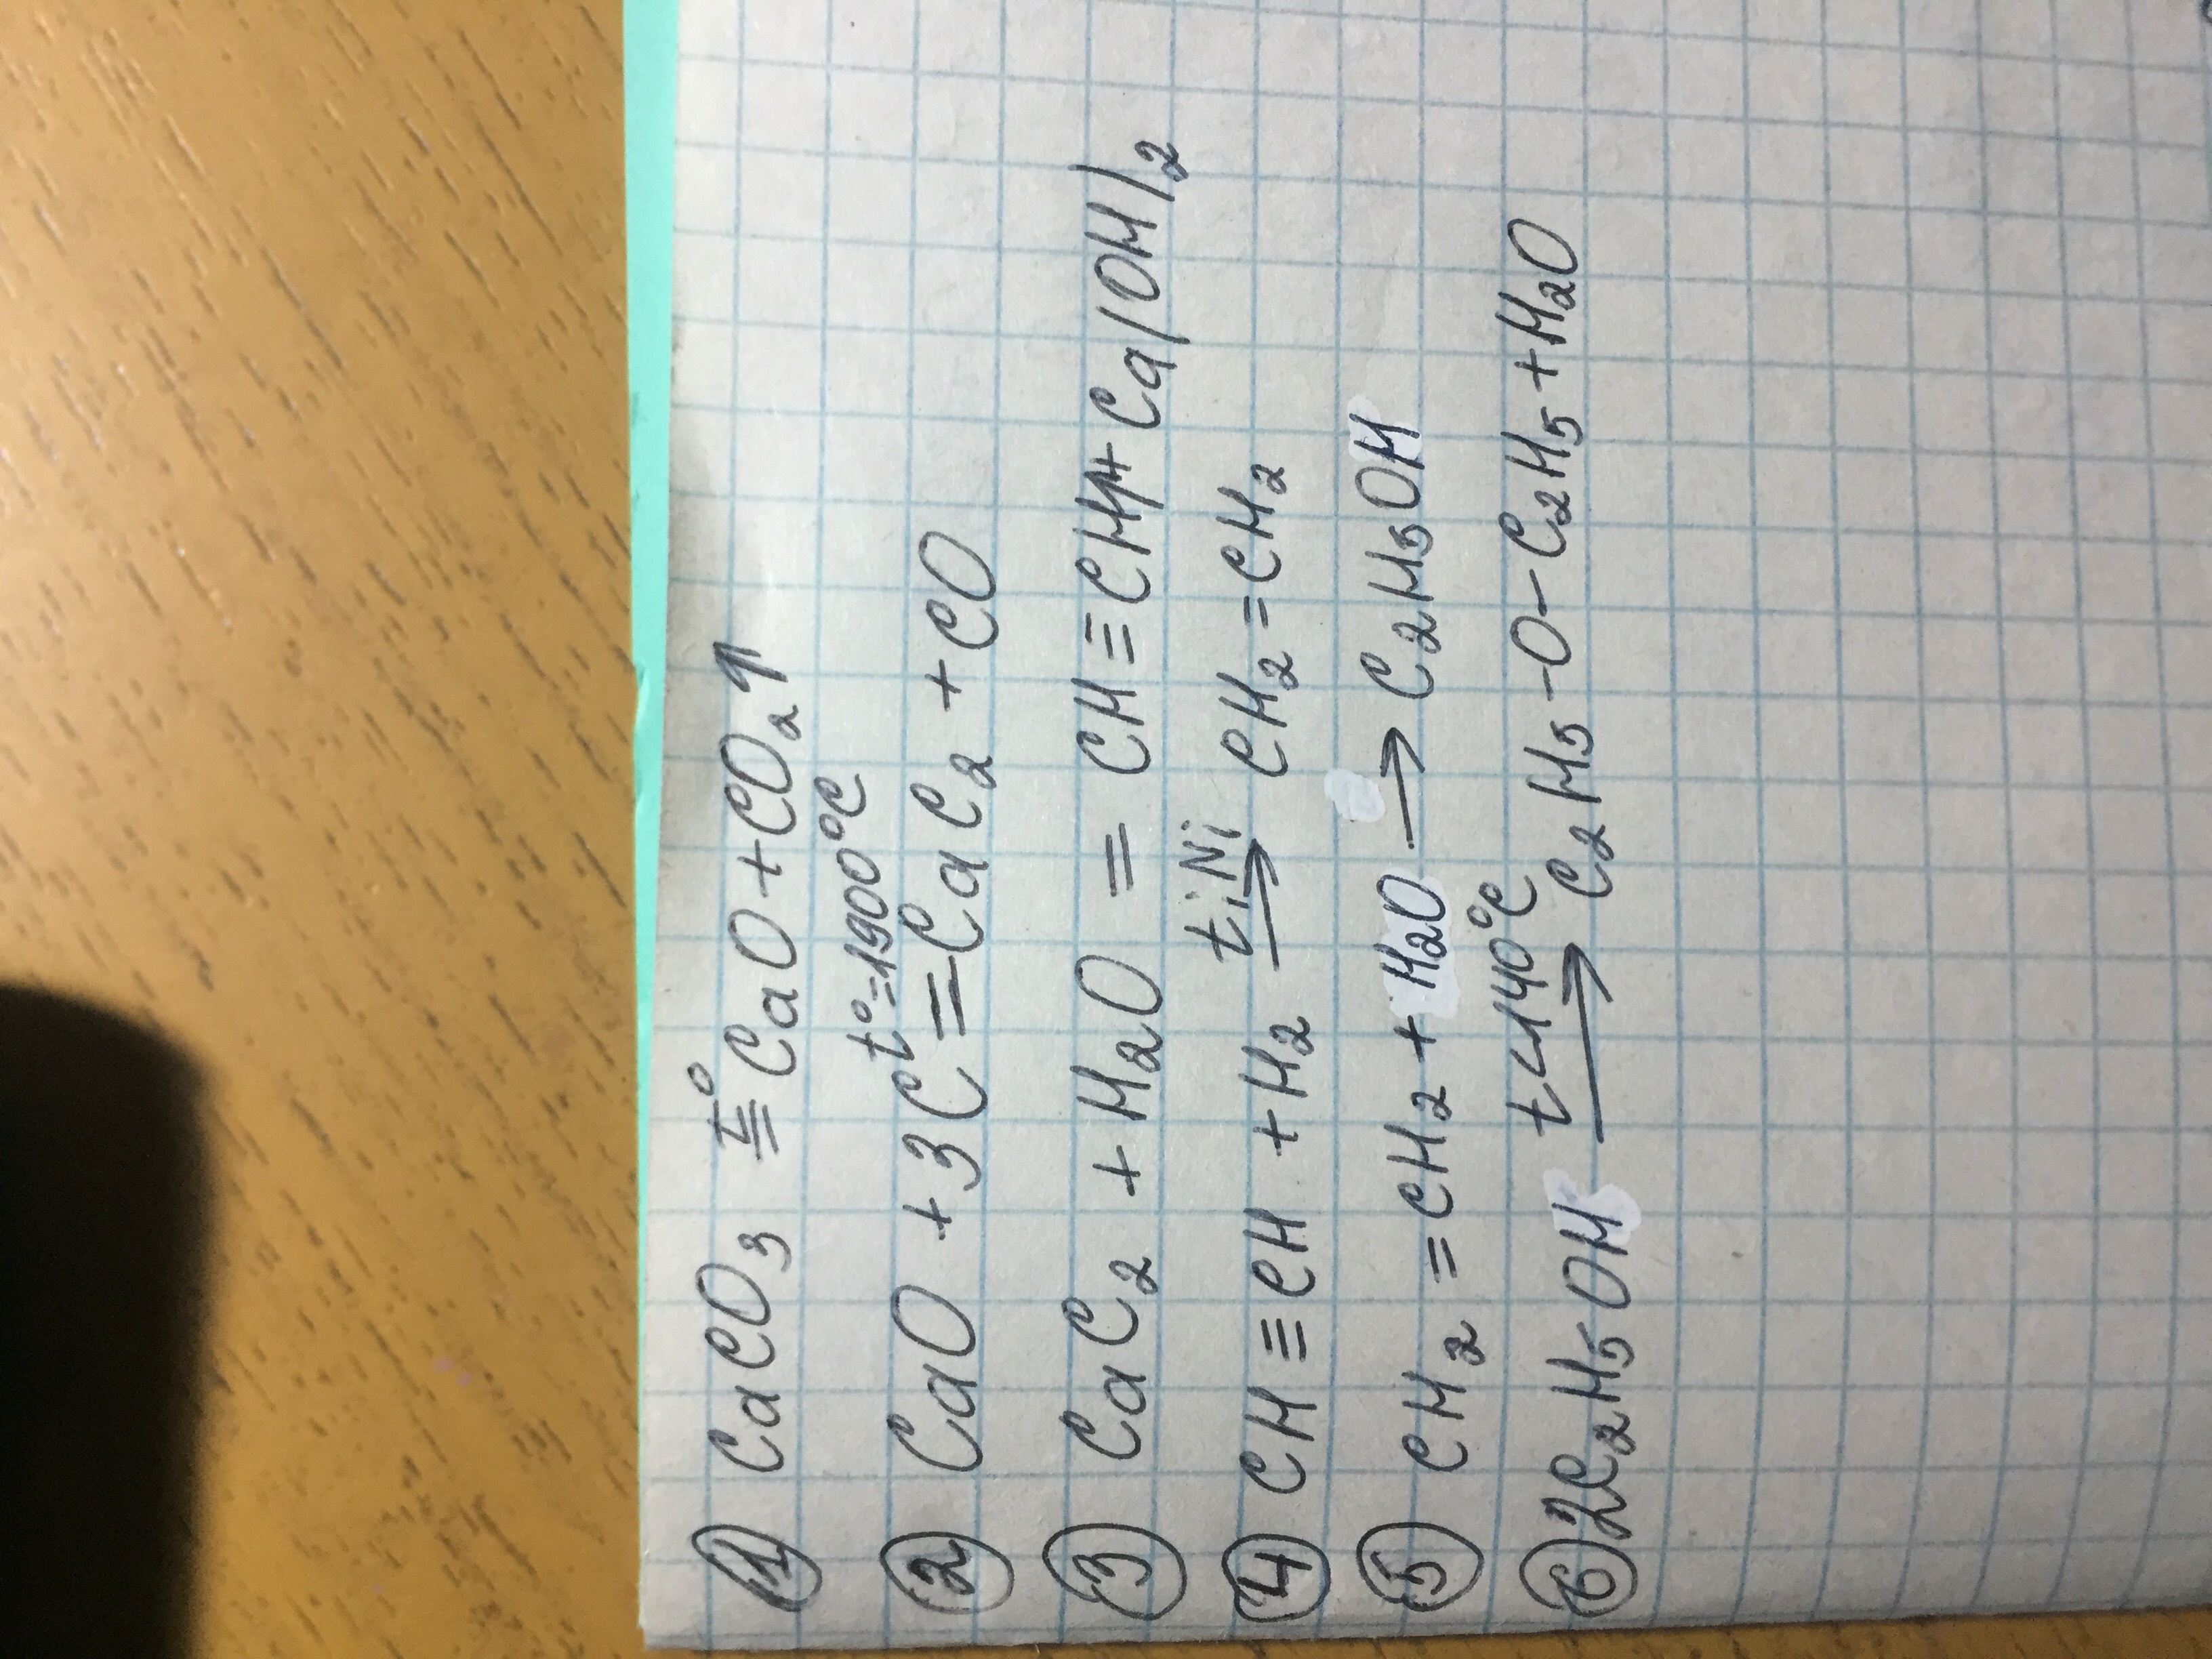 1 CaCO₃ =t° CaO + CO₂↑
2 CaO + 3C =t°=1900°C CaC₂ + CO
3 CaC₂ + H₂O = CH≡CH + Ca(OH)₂
4 CH≡CH + H₂ t;Ni→ CH₂=CH₂
5 CH₂=CH₂ + H₂O → C₂H₅OH
6 2C₂H₅OH t<140°C→ C₂H₅-O-C₂H₅ + H₂O